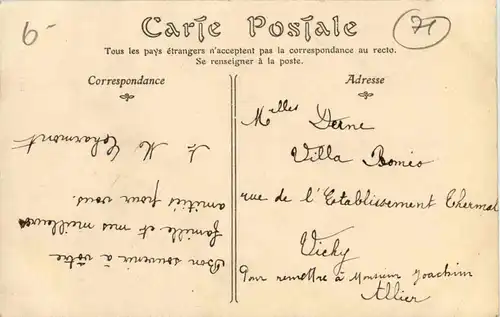 6-
71
Carte Postale
Tous les pays étrangers n'acceptent pas la correspondance au recto.
Se renseigner à la poste.
Correspondance
Bon souvenir à vôtre
famille et mes meilleures
amitiés pour vous.
Charmont
Adresse
Melles Derne
Villa Roméo
rue de l'Etablissement Thermal
Vichy
Pour remettre à Monsieur Joachim
Allier